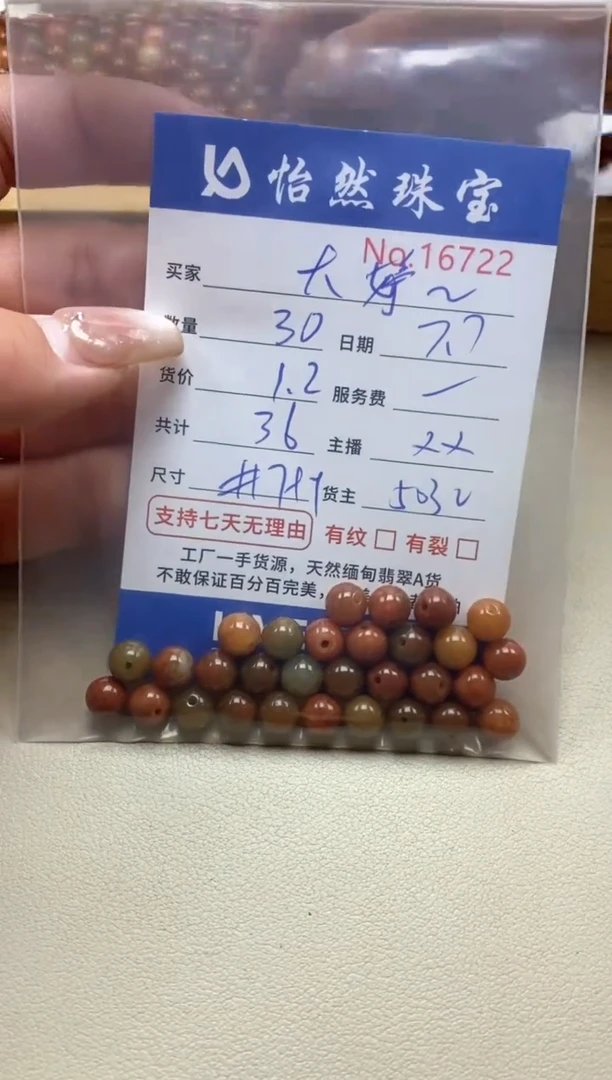 怡然珠宝
No.16722
买家 大婷~
数量 30 日期 7.7
货价 1.2 服务费 —
共计 36 主播 xx
尺寸 货主
支持七天无理由 有纹 □ 有裂 □
工厂一手货源，天然缅甸翡翠A货
不敢保证百分百完美，